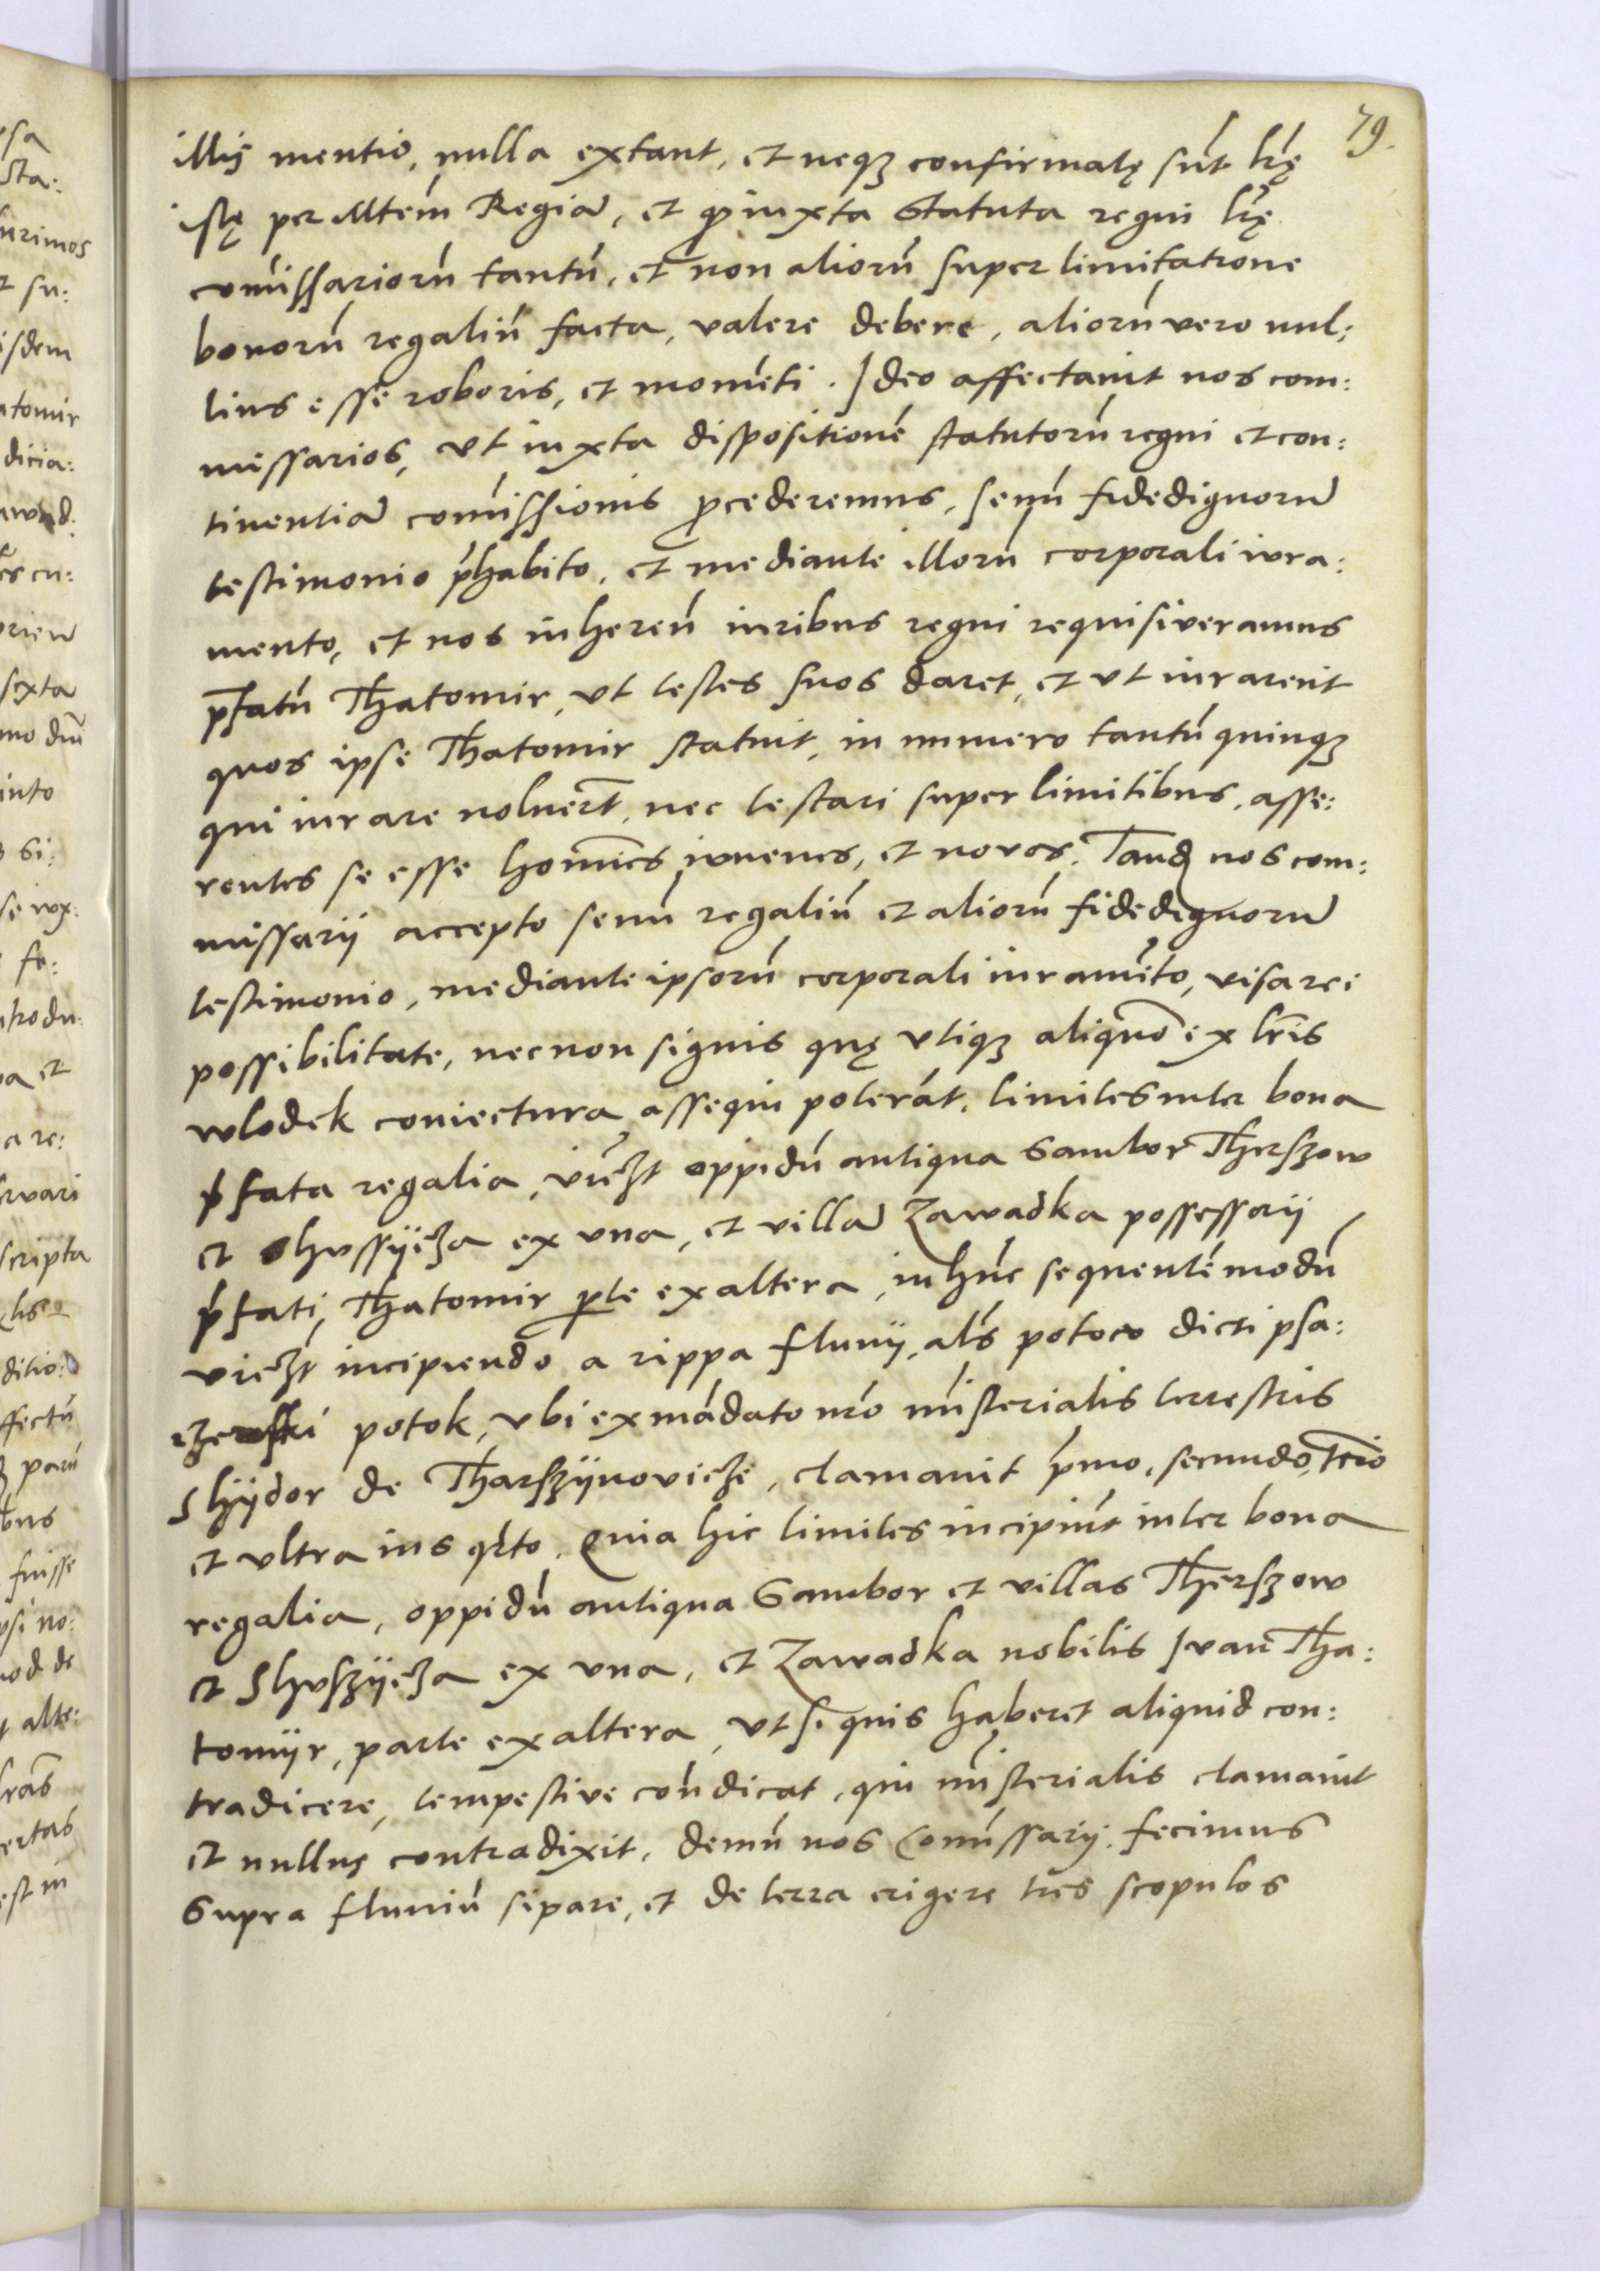 79.
illis mentio, nulla extant, et neqʒ confirmatę sūt lr̄ę
istę per Mtem̄ Regiā, et q̄ iuxta Statuta regni lr̄ę
com̄issariorū tantū, et non aliorū super limitatione
bonorū regaliū facta, valere debere, aliorū vero nul:
lius esse roboris, et momēti. Ideo affectavit nos com:
missarios, vt iuxta dispositionē statutorū regni et con:
tinentiā com̄issionis ꝓcederemus, senū fidedignorū
testimonio p̄habito, et mediante illorū corporali iura:
mento, et nos inheren̄ iuribus regni requisiveramus
p̄fatū Thatomir, vt testes suos daret, et vt iurarent
quos ipse Thatomir statuit, in numero tantū quinqʒ
qui iurare noluer̄t, nec testari super limitibus, asse:
rentes se esse homīes iuvenes, et novos. Tandē nos com:
missarij accepto senū regaliū et aliorū fidedignorū
testimonio, mediante ipsorū corporali iuramēto, visa rei
possibilitate, necnon signis quę vtiqʒ aliquō ex lr̄is
wlodek coniectura assequi poterāt, limites inter bona
p̄fata regalia, vicʒt oppidū antiqua Sambor Therszow
et Shvssÿcza ex vna, et villā Zawadka possessorij
p̄fati Thatomir ꝑte ex altera, in hūc sequentē modū
vicʒt incipiendo a rippa fluvij, al̄s potoco dicti psa:
rzewski potok, vbi ex mādato nr̄o mīsterialis terrestris
Shÿdor de Tharszÿnovicze, clamavit p̄mo, secundo, tr̄cio
et vltra ius qrto. Quia hic limites incipiūt inter bona
regalia, oppidū antiqua Sambor et villas Therszow
et Shvszÿcza ex vna, et Zawadka nobilis Ivan Tha:
tomÿr, parte ex altera, vt si quis haberet aliquid con:
tradicere, tempestive con̄dicat, qui mīsterialis clamavit
et nullus contradixit, demū nos Com̄issarij fecimus
Supra fluviū sipare, et de terra erigere tres scopulos